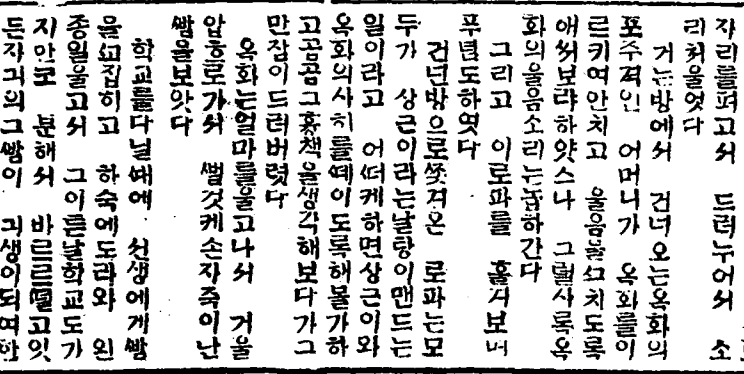 자리를펴고서 드러누어서 소
리처울엇다
거는방에서 건너오는옥화의
포주격인 어머니가 옥화를이
르키여안치고 울음을ᄭᅳ치도록
애써보랴하얏스나 그럴사록옥
화의울음소리는놉하간다
그리고 이로파를 흘겨보며
푸념도하엿다
건넌방으로ᄶᅩᆺ겨온 로파는모
두가 상근이라는날탕이맨드는
일이라고 어ᄯᅥ케하면상근이와
옥화의사히를ᄯᅦ이도록해볼가하
고곰곰그흉책을생각해보다가그
만잠이드러버렷다
옥화는얼마를울고나서 거울
압흐로가서 ᄲᅥᆯ것케손자죽이난
ᄲᅣᆷ을보앗다
학교를다닐ᄯᅢ에 선생에게ᄲᅣᆷ
을ᄭᅩ집히고 하숙에도라와 왼
종일울고서 그이튼날학교도가
지안코 분해서 바르르ᄯᅥᆯ고잇
든자긔의그ᄲᅣᆷ이 긔생이되여한